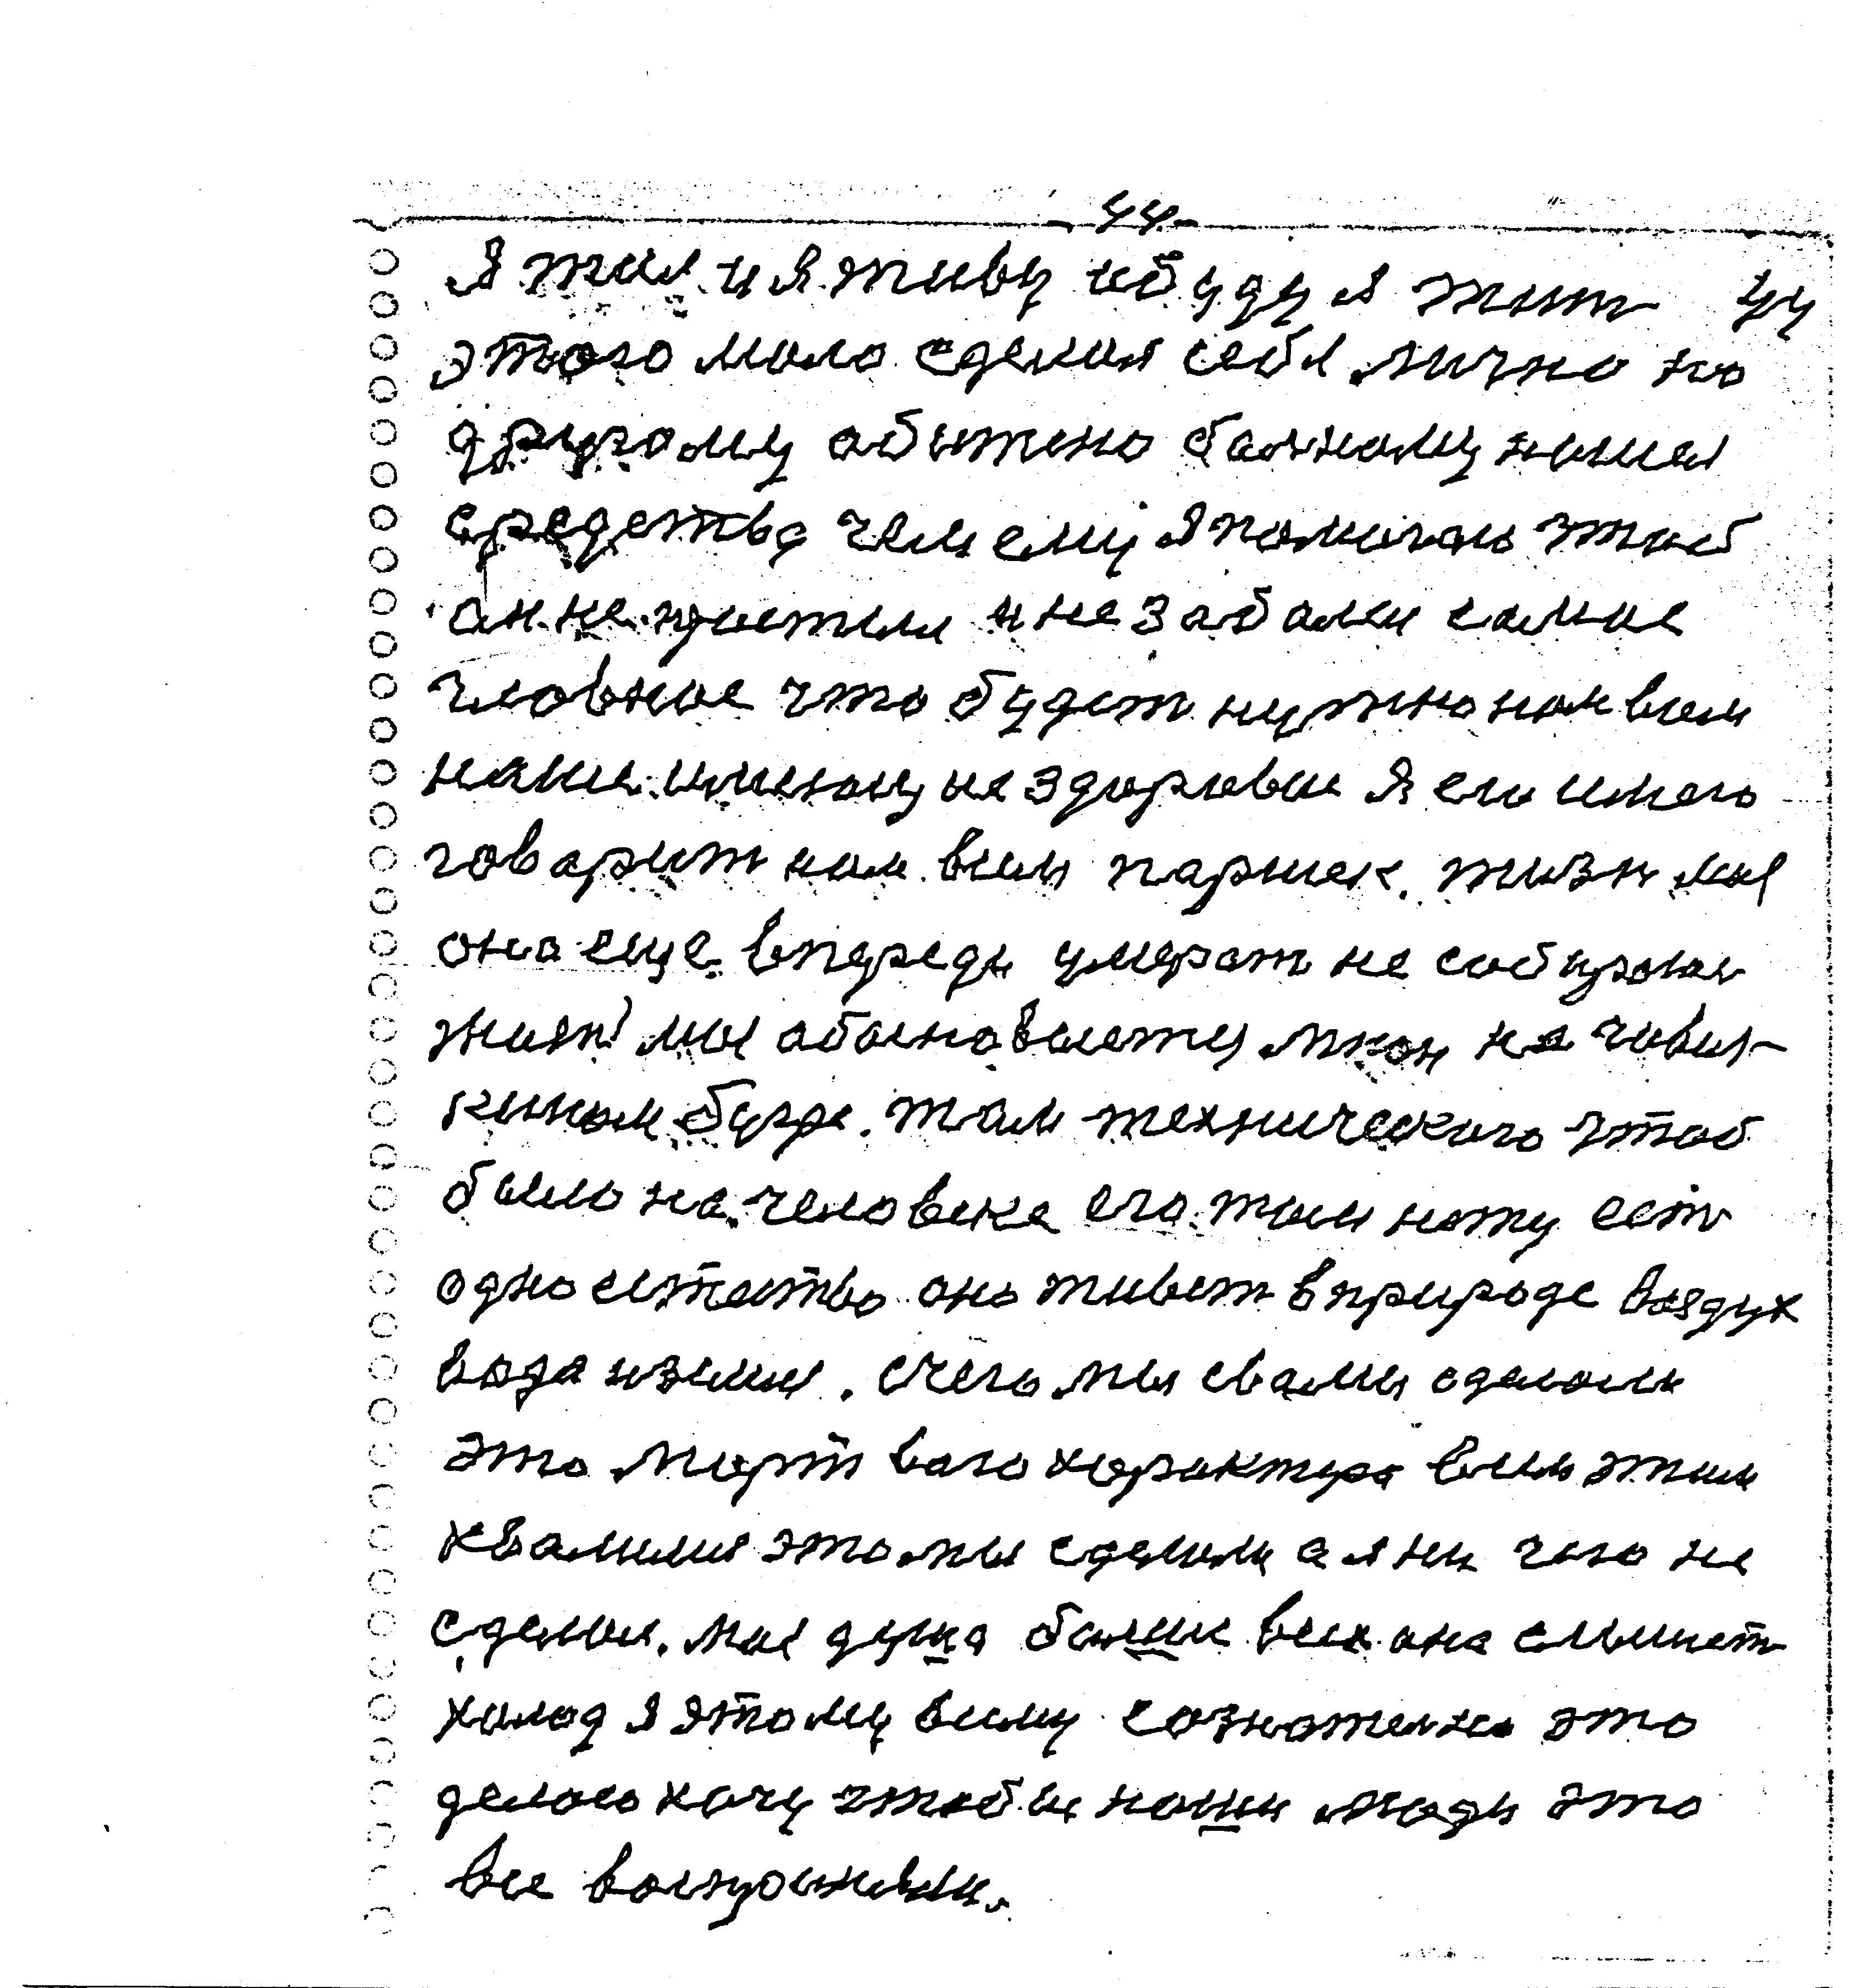 -44-
я жил и я живу и буду я жит 44
этого мало сделал себя лично но
другому обижено больному нашел
средства чем ему я помогаю чтоб
он не простыл и не заболел самое
главное что будет нужно нам всем
наше к иному не здоровье я его имею
говарит нам всем паршек. жизн моя
она еще впереди умерат не собираюс
жизн моя обосновается мной на чивил-
кином бугре. там технического чтоб
было на человека его там нету ест
одно естество оно живет в природе воздух
вода и земля. с чего мы с вами сделали
это март ваго характера всем этим
хвалился это мы сделали а я ни чего не
сделал. моя душа болше всех она слышет
холод я этому всему сознателно это
делаю хочу чтобы наши люди это
все воспринели.